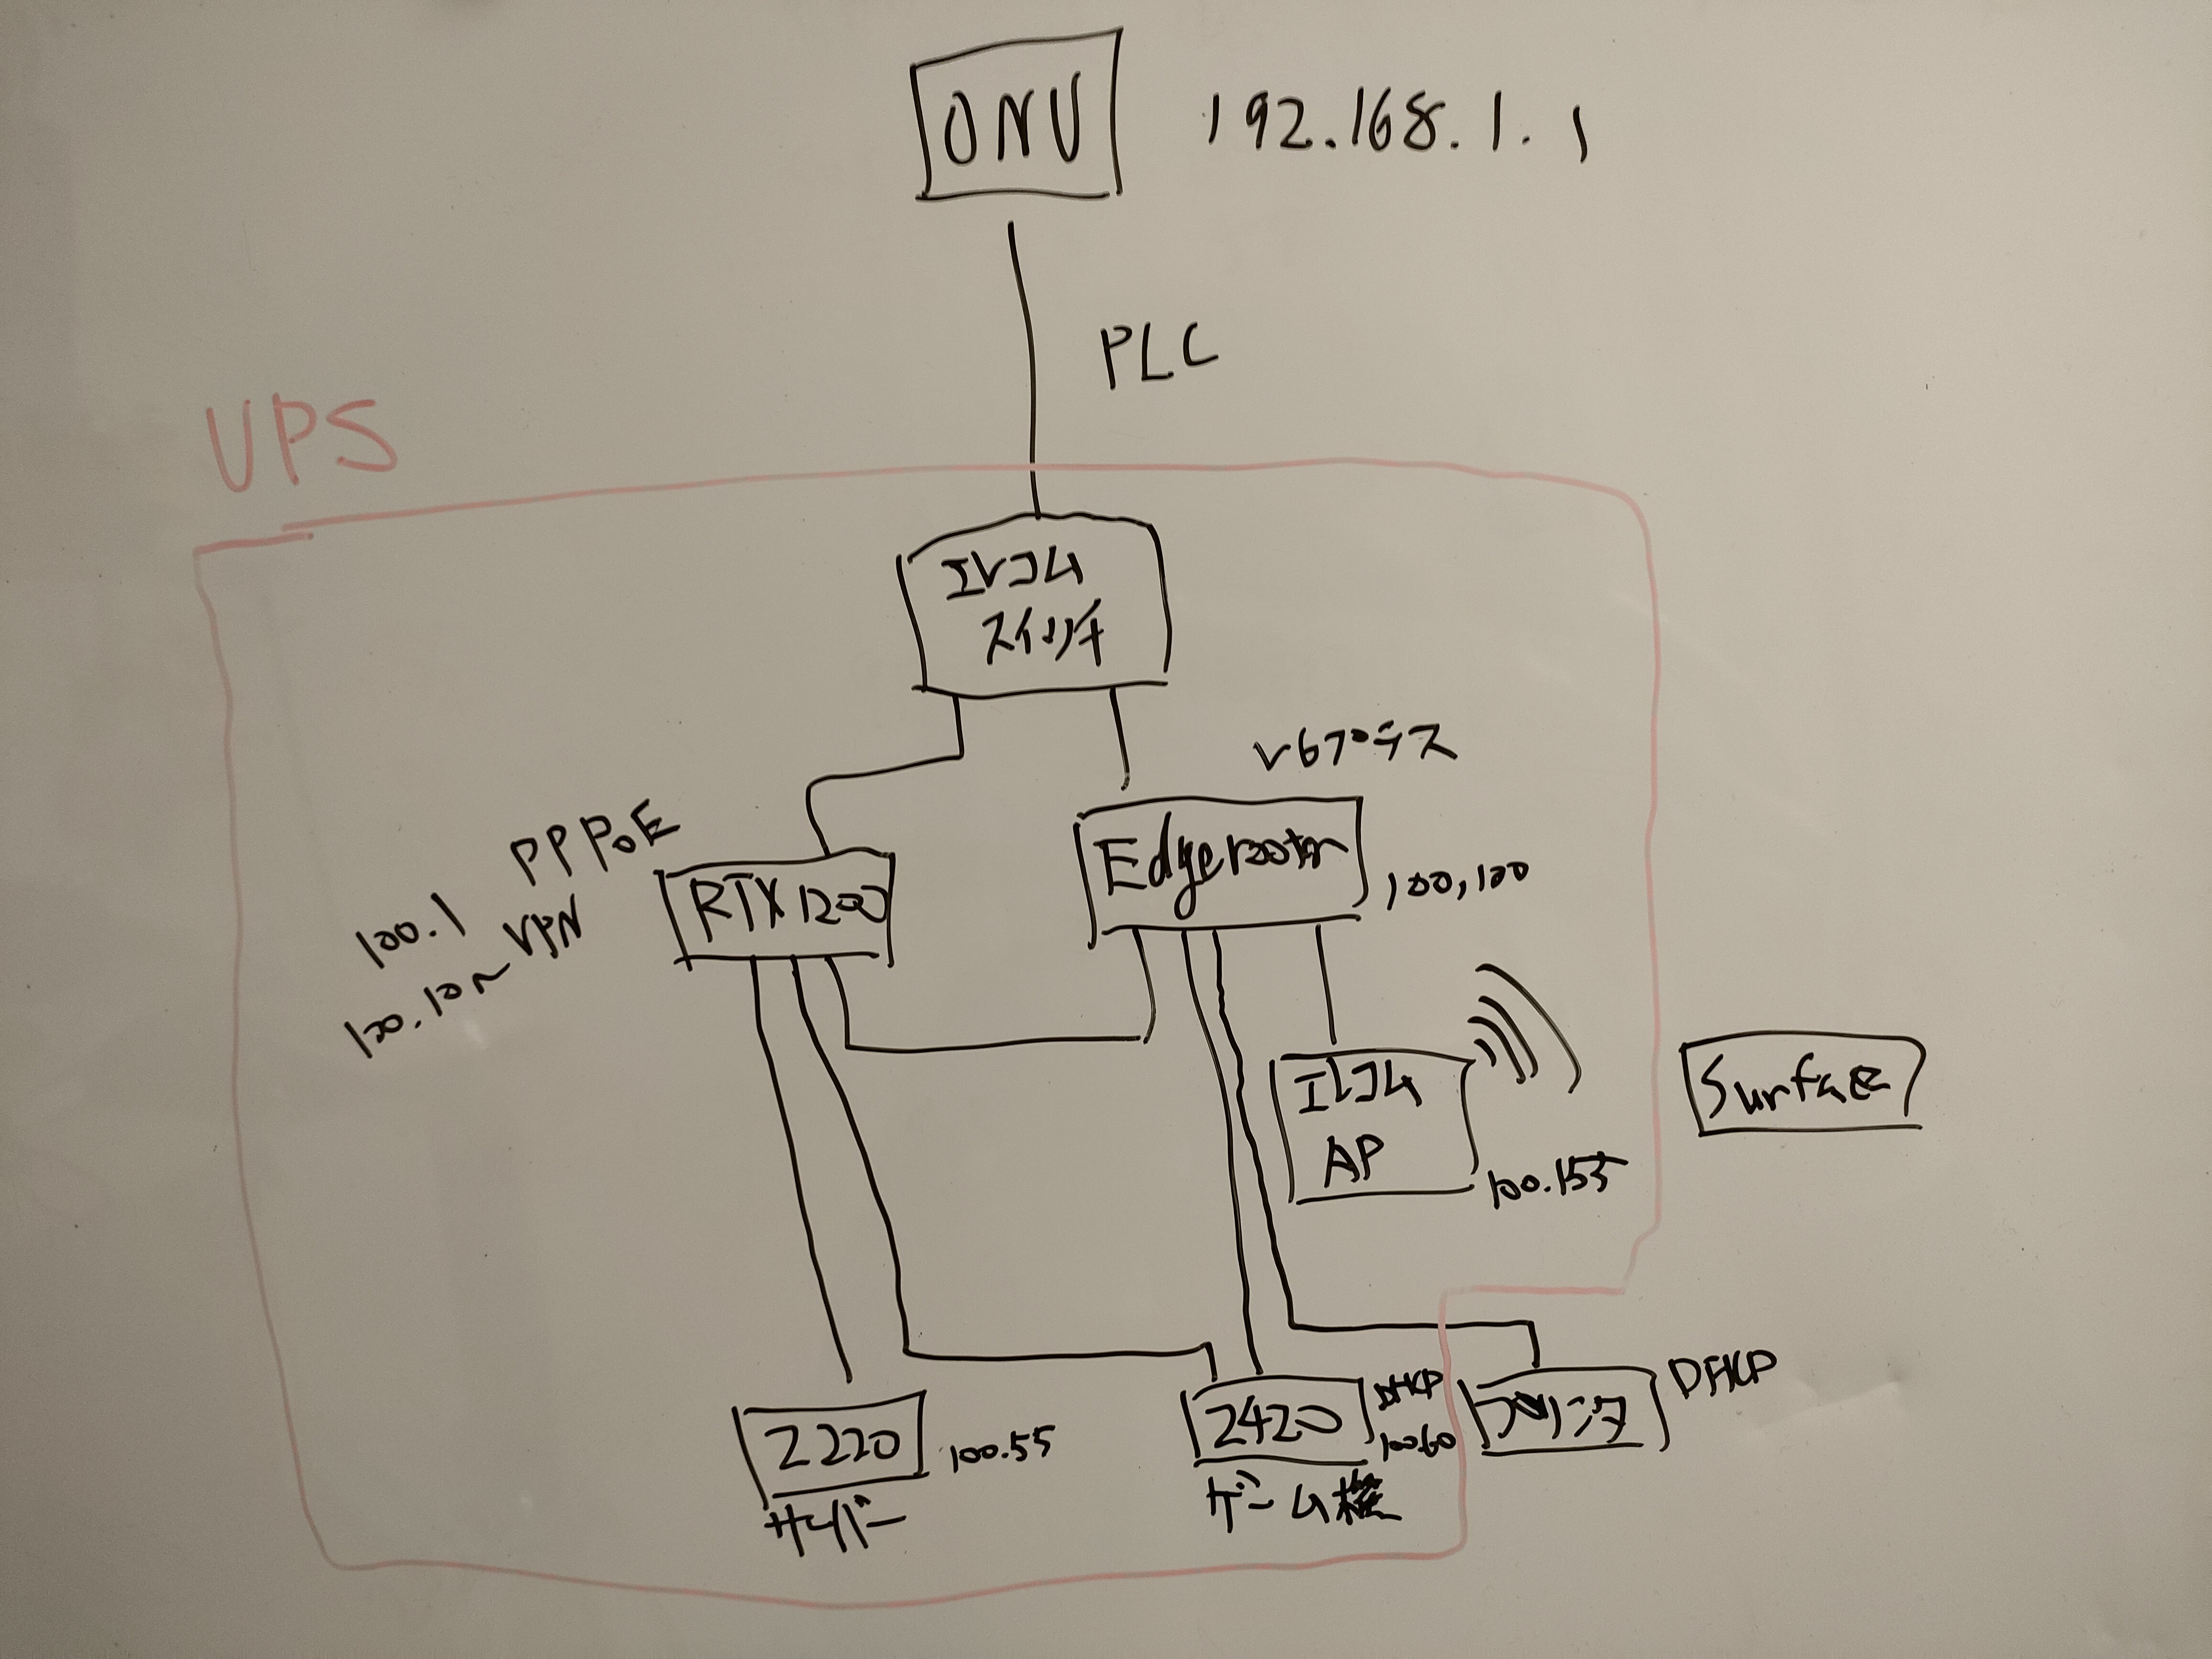 ONU
192.168.1.1
PLC
UPS
エレコム
スイッチ
v6プラス
PPPoE
RTX1200
100.1
100.10〜VPN
Edgerooter
100,100
エレコム
AP
100.155
Surface
Z220
100.55
サーバー
2420
DHCP
100.60
ゲーム機
プリンタ
DHCP